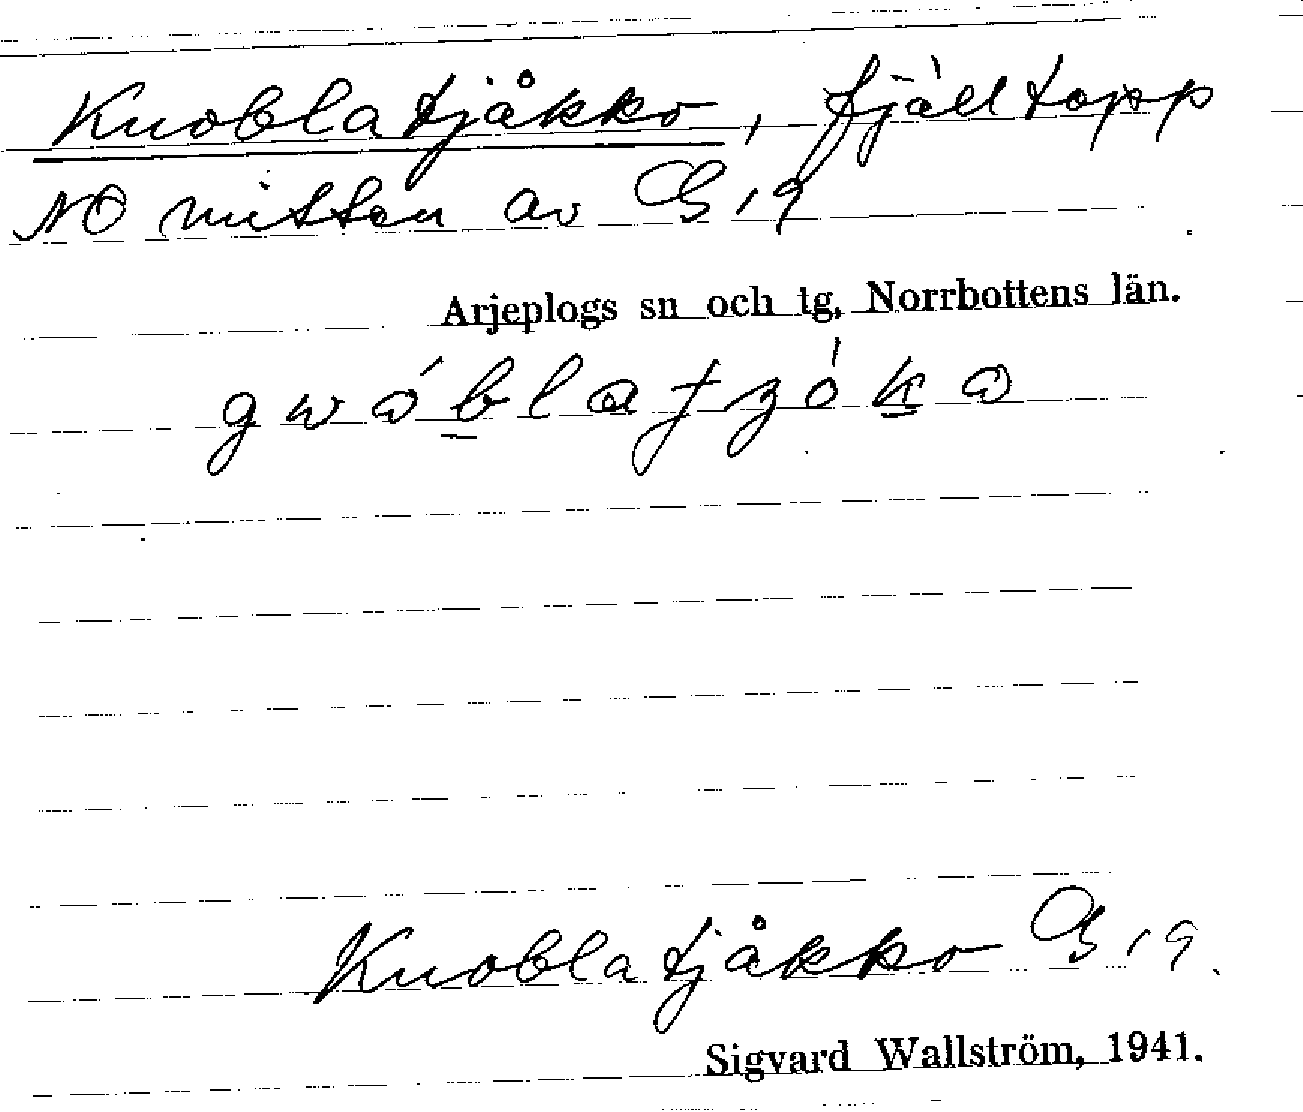 Kuoblatjåkko, fjälltopp
NO mitten av G 19
Arjeplogs sn och tg, Norrbottens län.
Kuoblatjåkko G 19.
Sigvard Wallström, 1941.